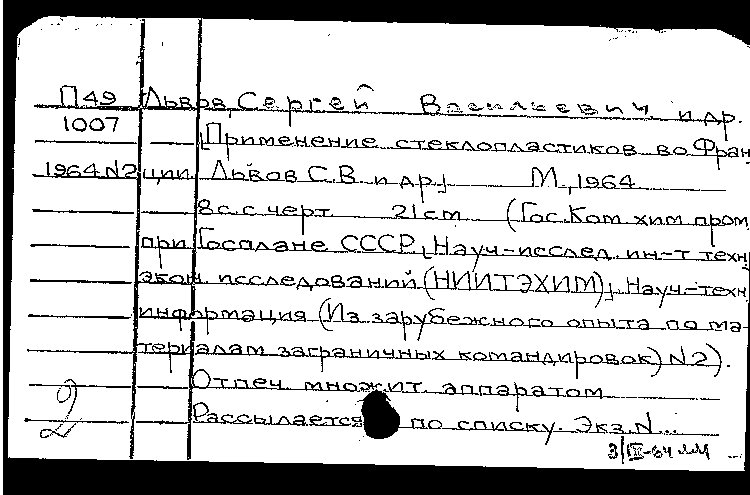 П49 Львов, Сергей Васильевич и др.
1007 [Применение стеклопластиков во Фран
1964 N2 ции Львов С.В. и др.] М., 1964
8с. с черт. 21 cm (Гос. Ком хим пром
при Госплане СССР, [Науч-исслед. ин-т техн.
экон. исследований (НИИТЭХИМ)], Науч-техн
информация (Из зарубежного опыта по ма-
териалам заграничных командировок) N2).
Отпеч. множит. аппаратом
Рассылается по списку. Экз. N...
2
3/IX-64 ММ